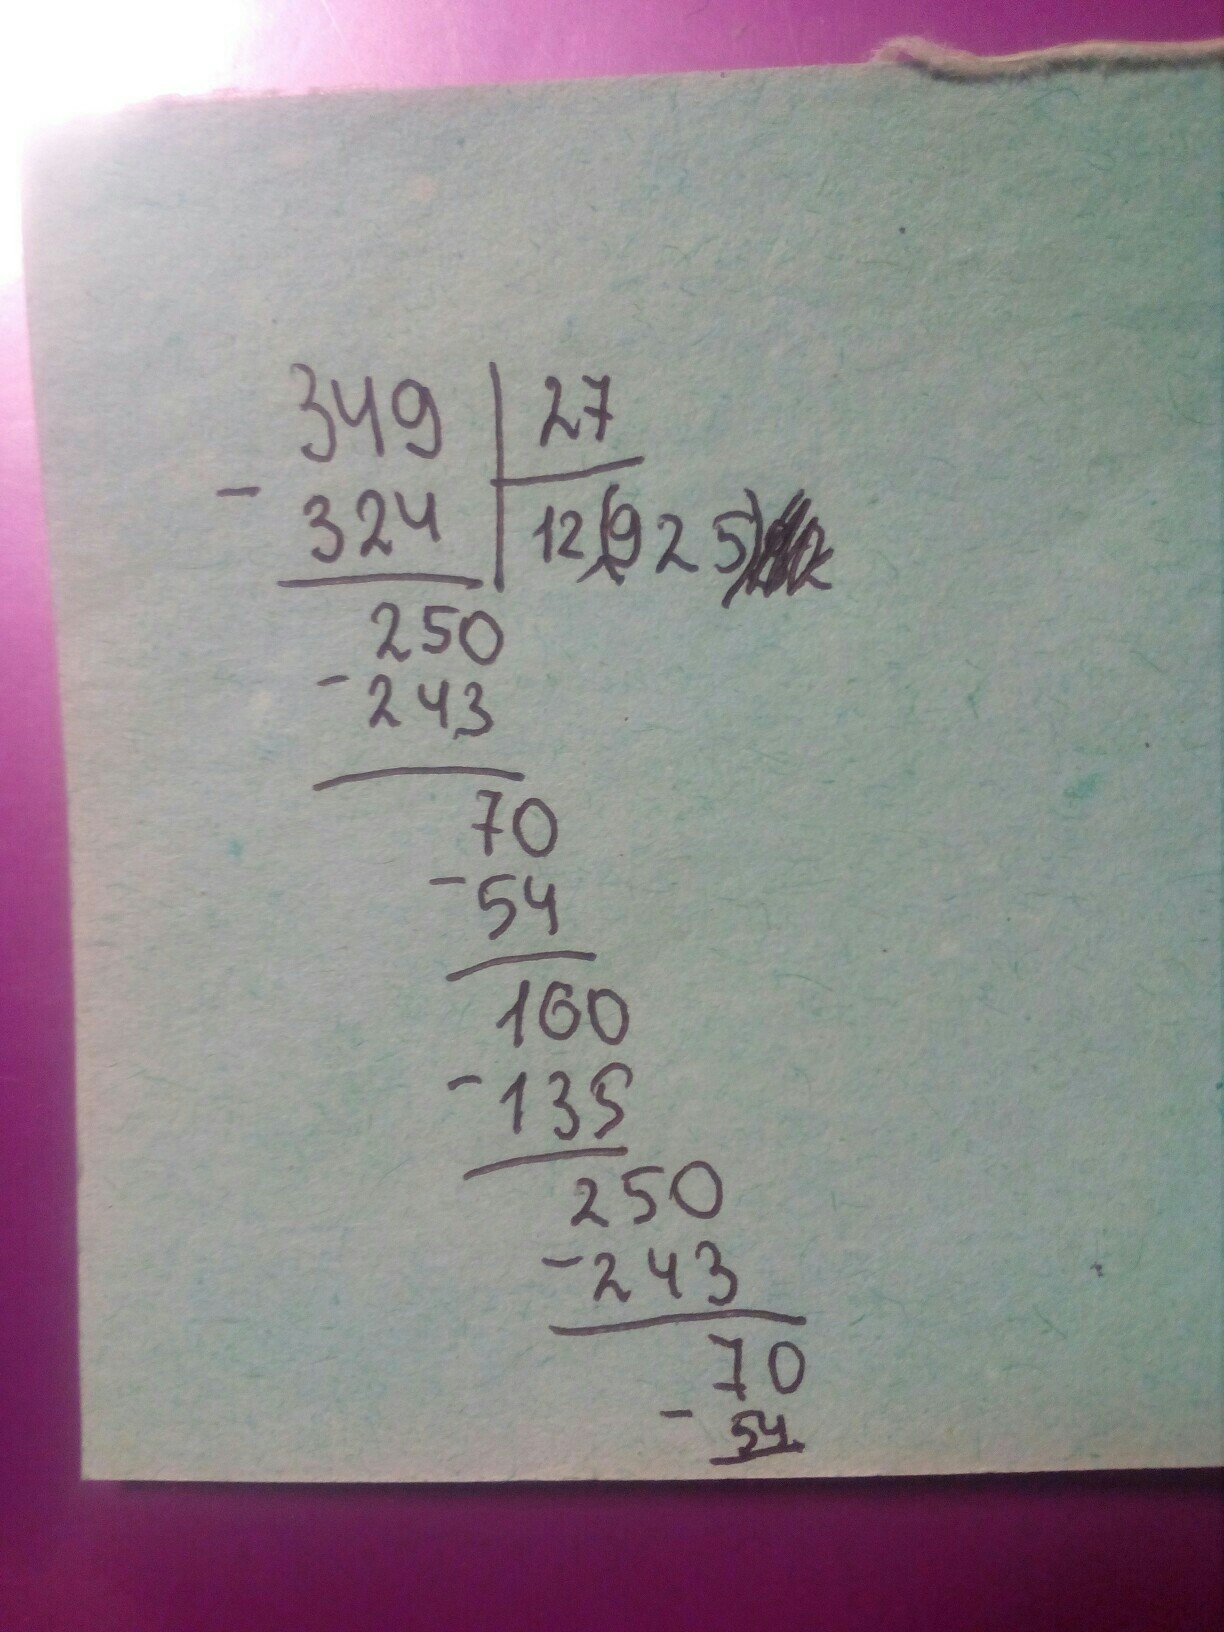 349 27
- 324 12,(925)
250
- 243
70
- 54
160
- 135
250
- 243
70
- 54